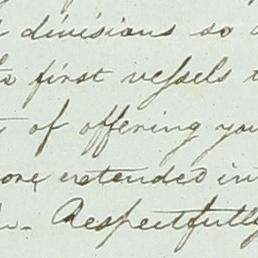 divisions so
first vessels
of offering you
ore extended in
Respectfully